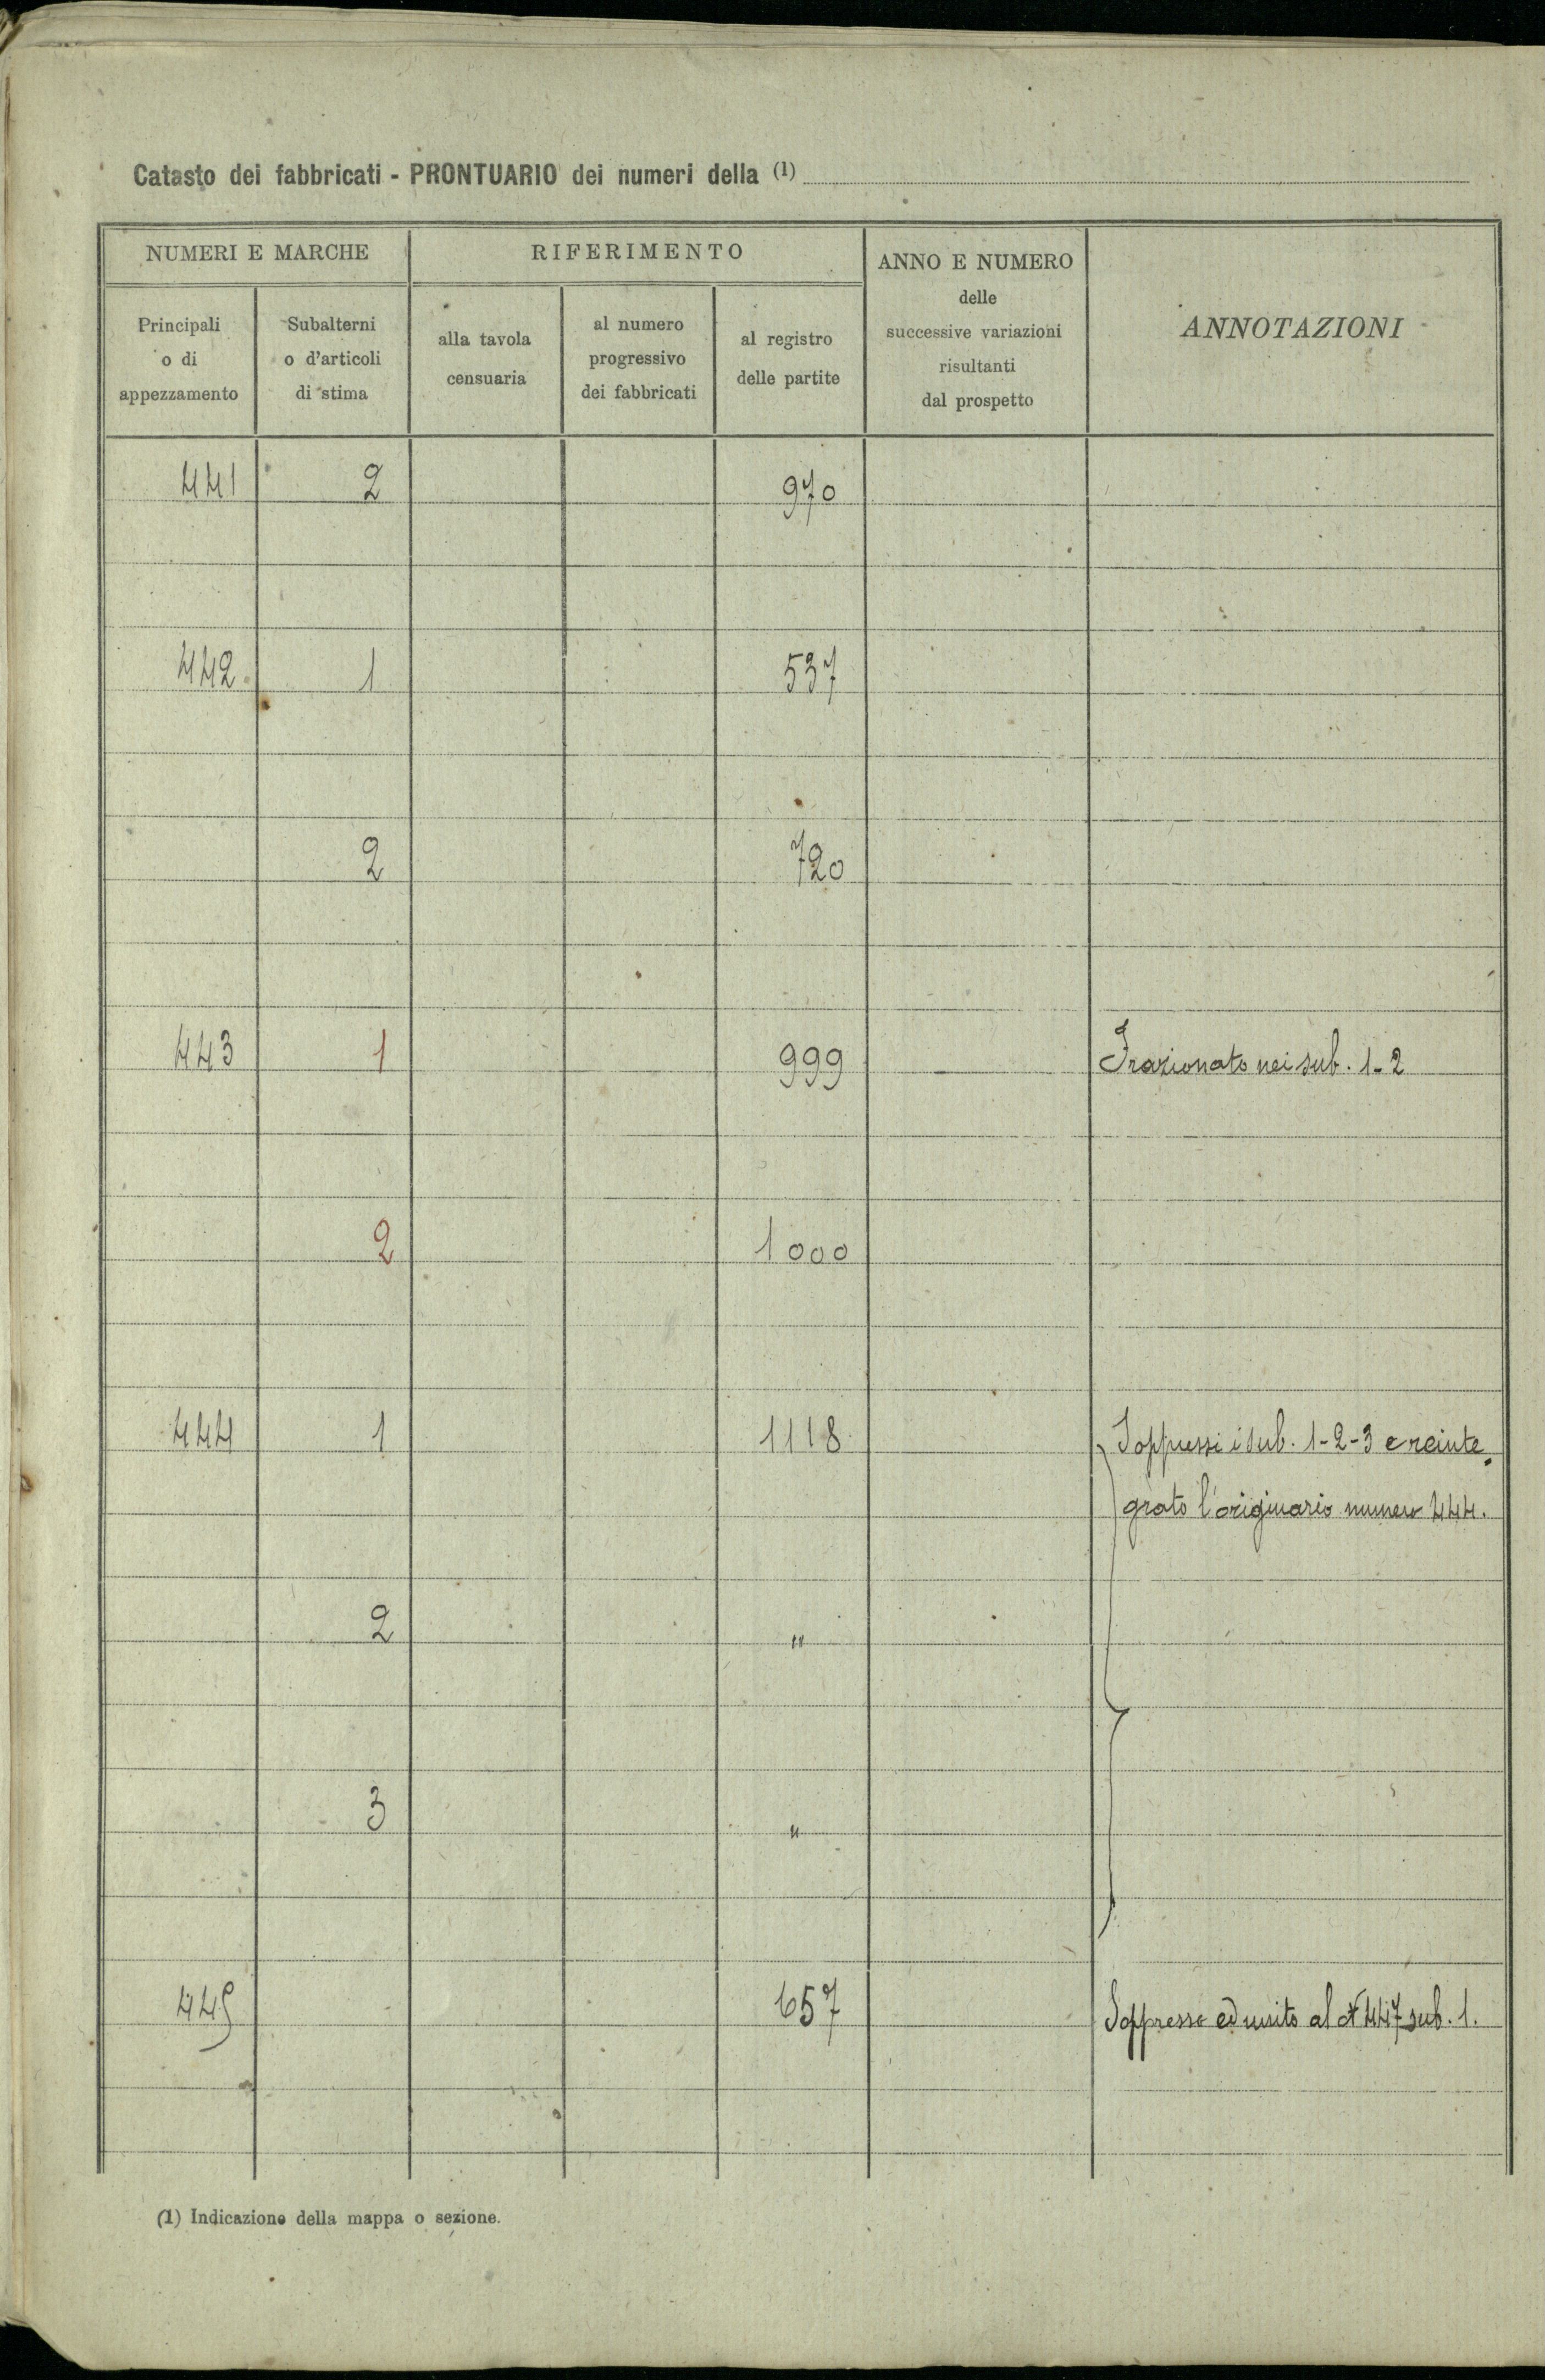 Catasto dei fabbricati - PRONTUARIO dei numeri della (1)
NUMERI E MARCHE
RIFERIMENTO
ANNO E NUMERO
delle
successive variazioni
risultanti
dal prospetto
ANNOTAZIONI
Principali
o di
appezzamento
Subalterni
o d'articoli
di stima
alla tavola
censuaria
al numero
progressivo
dei fabbricati
al registro
delle partite
441 2 970
442 1 537
2 720
443 1 999 Frazionato nei sub. 1-2
2 1000
444 1 1118 Soppressi i sub. 1-2-3 e reinte
grato l'originario numero 444.
2 "
3 "
445 657 Soppresso ed unito al N 447 sub. 1.
(1) Indicazione della mappa o sezione.